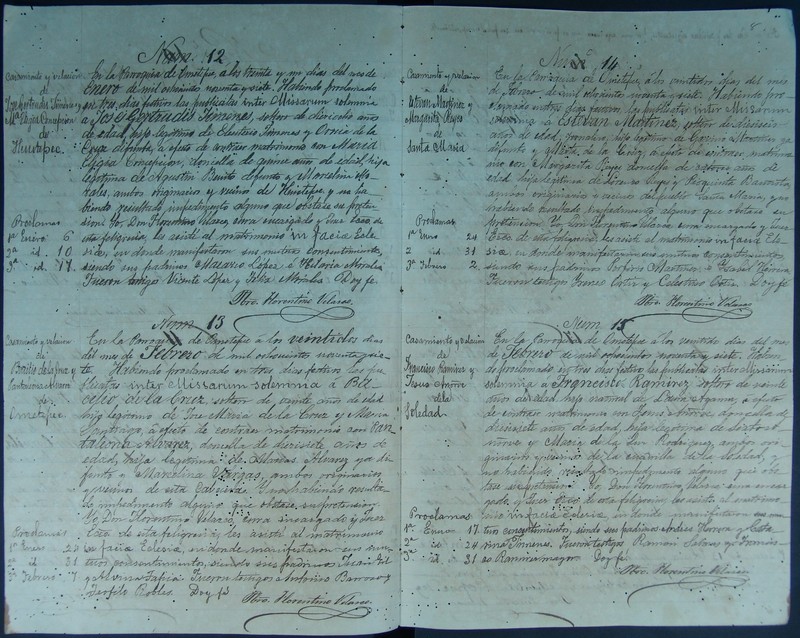 Num 12
Casamiento y velacion
de
Jose Gertrudis Jimenes y
Mª Elijia Concepcion
de
Huistepec.
En la Parroquia de Ometepec, a los veinte y un dias del mes de
Enero de mil ochocientos noventa y siete. Habiendo proclamado
en tres dias festivos las publicatas inter Missarum solemnia
a Jose Gertrudis Jimenes, soltero de dieciocho años
de edad, hijo legitimo de Eleuterio Jimenes y
Cruz difunta, a efecto de contraer matrimonio con Maria
Concepcion, doncella de quince años de edad, hija
legitima de Agustin Benito difunto y Marcelina Mo-
rales, ambos originarios y vecinos de Huistepec y no ha
biendo resultado impedimento alguno que obstase su preten
sion; Yo, Don Florentino Velasco, cura encargado y Juez Ecco de
esta feligresia, les asisti al matrimonio in facia Ecle
sia, en donde manifestaron sus mutuos consentimientos,
siendo sus padrinos Macario López é Hilaria Morales
Fueron testigos Vicente López y Felix Morales. Doy fe
Proclamas
1ª Enero 6
2ª id. 10
3ª id. 17
Mtro. Florentino Velasco.
Num 13
Casamiento y velacion
de
Basilio de la Cruz y
Pantaleona Alvarez
de
Ometepec
En la Parroquia de Ometepec a los veintidos dias
del mes de Febrero de mil ochocientos noventa y sie
te. Habiendo proclamado en tres dias festivos las pu
blicatas inter Missarum solemnia á Ba
silio de la Cruz, soltero de veinte años de edad
hijo legitimo de Jose Maria de la Cruz y Maria
Santiago, á efecto de contraer matrimonio con Pan
taleona Alvarez, doncella de diecisiete años de
edad, hija legitima de Matias Alvarez ya di
funto y Marcelina Vargas, ambos originarios
y vecinos de esta Cabecera. Y no habiendo resulta
do impedimento alguno que obstase su pretension
Yo, Don Florentino Velasco, cura encargado y Juez
Ecco de esta feligresia, les asisti al matrimonio
in facia Eclesia, en donde manifestaron sus mu
tuos consentimientos, siendo sus padrinos
y Fueron testigos Antonino Barroso y
Porfilio Robles. Doy fé
Proclamas
1ª Enero 24
2ª id 31
3ª Febrero 7
Mtro. Florentino Velasco.
8
Num 14
Casamiento y velacion
de
Estevan Martinez y
Margarita Reyes
de
Santa Maria
En la Parroquia de Ometepec a los cuatro dias del mes
de Febrero, de mil ochocientos noventa y siete. Habiendo pro
clamado en tres dias festivos las publicatas inter Missarum
solemnia á Estevan Martinez, soltero de
años de edad, hijo legitimo de
difunto y de la Cruz, á efecto de contraer matrimo
nio con Margarita Reyes doncella de catorce años de
edad, hija legitima de Lorenzo Reyes y Pasquinta Bautista,
ambos originarios y vecinos del pueblo Santa Maria, y no
habiendo resultado impedimento alguno que obstase su
pretension. Yo, Don Florentino Velasco cura encargado y Juez
Ecco de esta feligresia, les asisti al matrimonio in facia Ecle
sia en donde manifestaron sus mutuos consentimientos,
siendo sus padrinos Porfirio Martinez y Herrera
Fueron testigos Tomas Ortiz y Celestino Ortiz. Doy fé
Proclamas
1ª Enero 24
2 id 31
3ª Febrero 2
Mtro. Florentino Velasco.
Num 15
Casamiento y velacion
de
Francisco Ramirez y
Jesus Onofre
de la
Soledad
En la Parroquia de Ometepec a los veintidos dias del mes
de Febrero de mil ochocientos noventa y siete. Habien
do proclamado en tres dias festivos las publicatas inter Missarum
solemnia á Francisco Ramirez, soltero de veinte
años de edad, hijo natural de á efecto
de contraer matrimonio con Jesus Onofre doncella de
diecisiete años de edad, hija legitima de
y Maria de la Luz Rodriguez, ambos ori
ginarios y vecinos de la cuadrilla de la Soledad, y
no habiendo resultado impedimento alguno que obs
tase su pretension. Yo, Don Florentino Velasco cura encar
gado y Juez Ecco de esta feligresia, les asisti al matrimo
nio in facia Eclesia, en donde manifestaron sus mu
tuos consentimientos, siendo sus padrinos Andres Herrera y Cata
rina Jimenes. Fueron testigos Ramon Salazar y Tomas
Ramirez mayor. Doy fé
Proclamas
1ª Enero 17
2ª id 24
3ª id 31
Mtro. Florentino Velasco